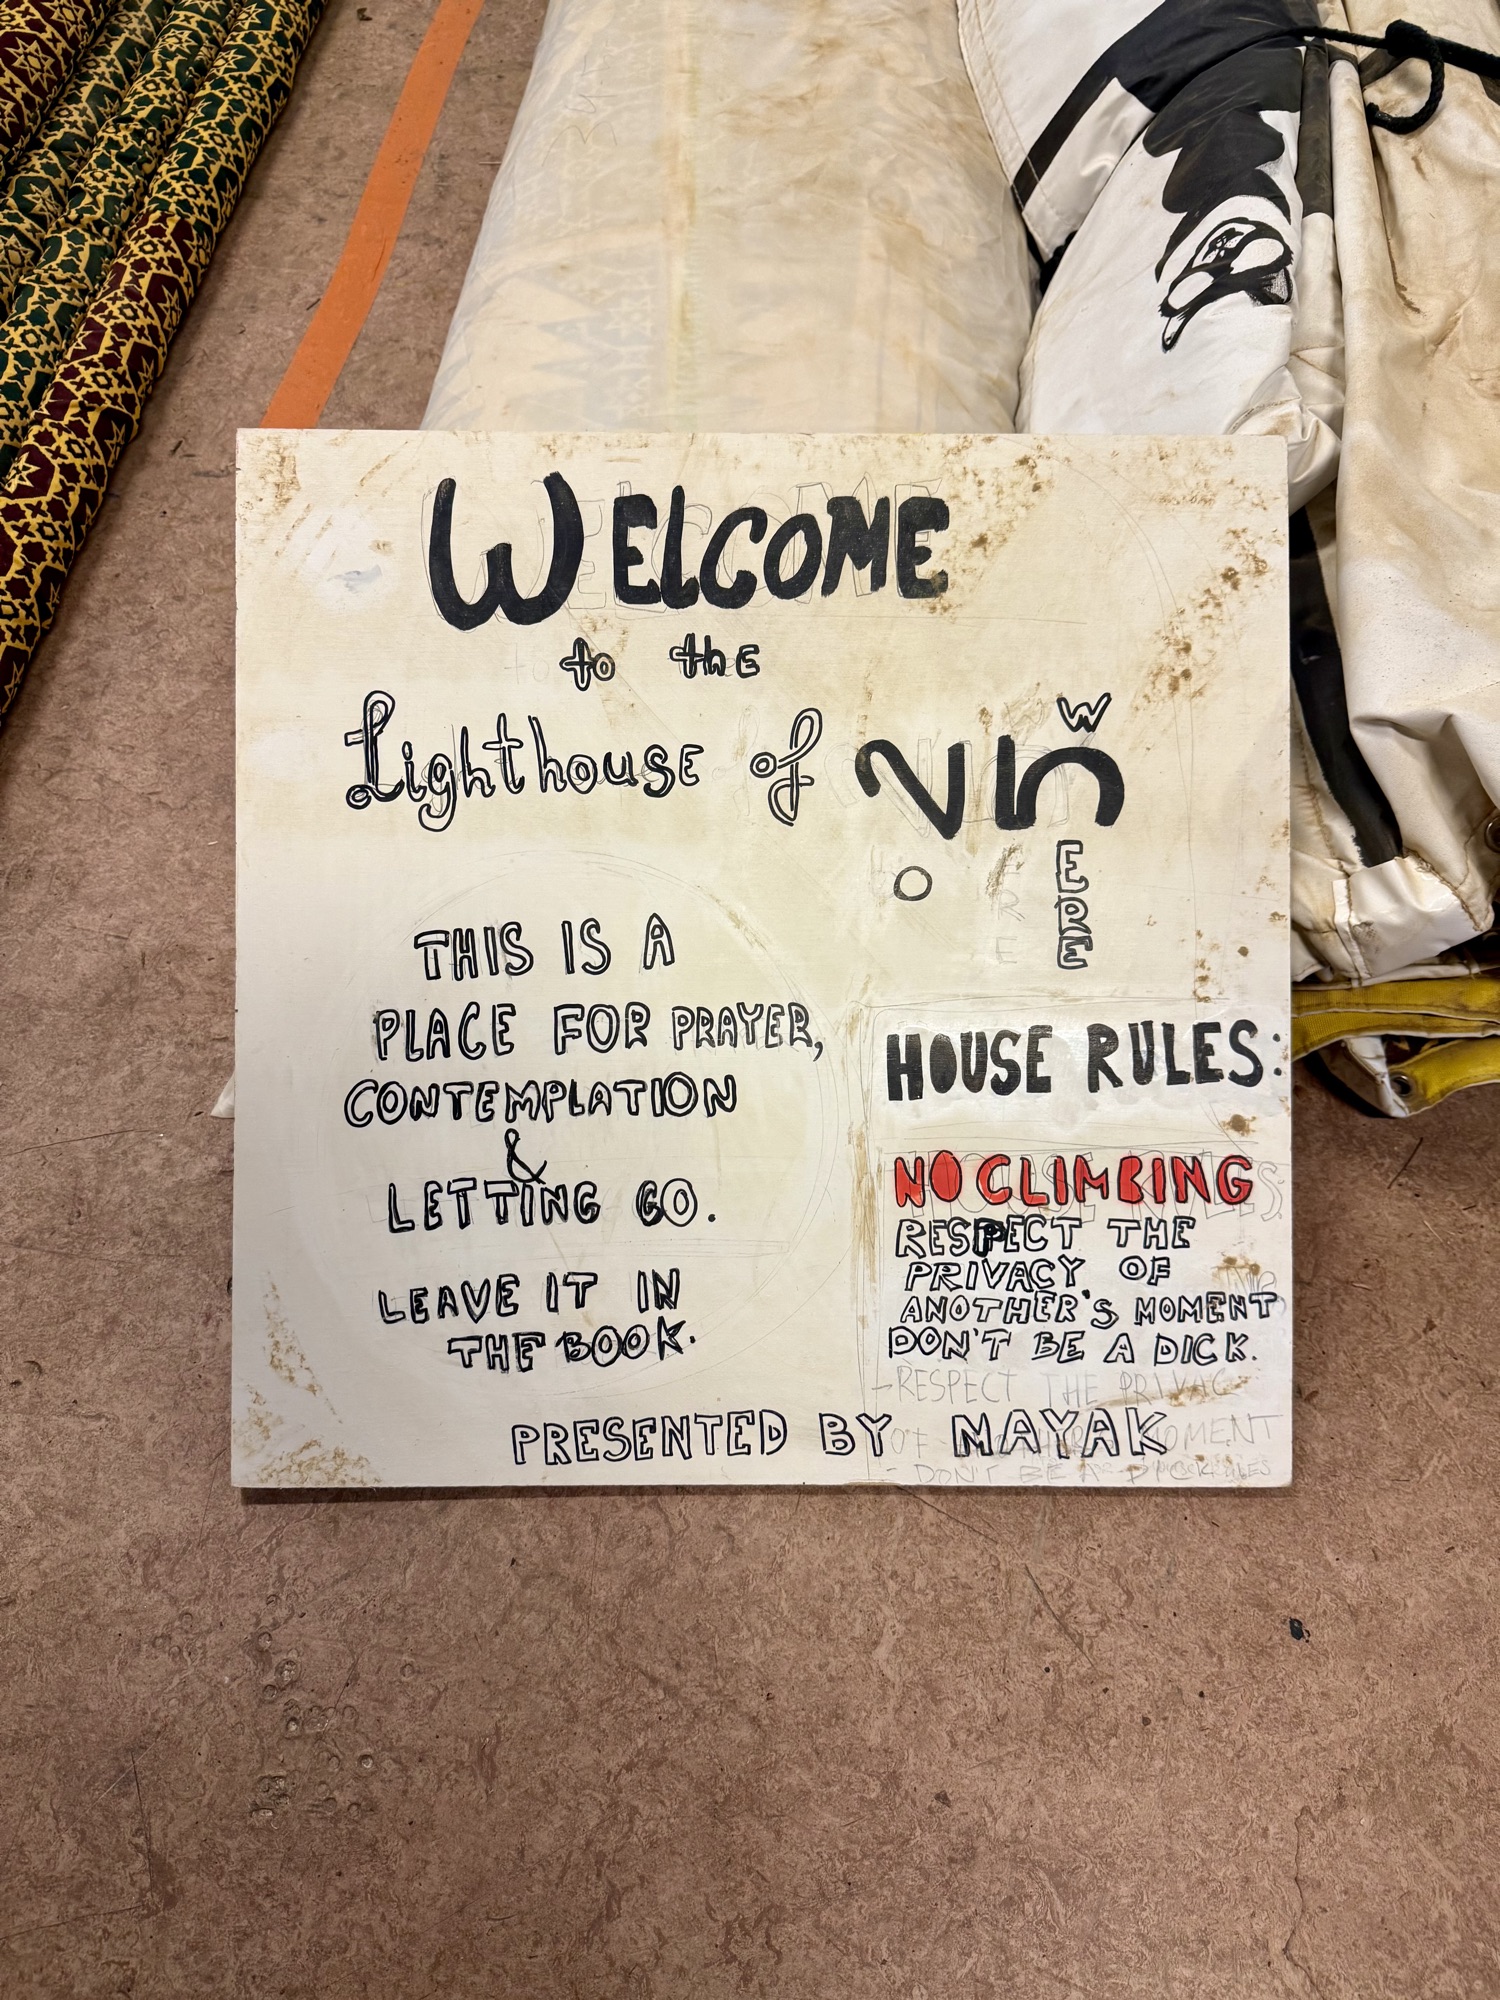 WELCOME
to thE
Lighthouse of
W
O
ERE
THIS IS A
PLACE FOR PRAYER,
CONTEMPLATION
&
LETTING GO.
LEAVE IT IN
THE BOOK.
HOUSE RULES:
NO CLIMBING
RESPECT THE
PRIVACY OF
ANOTHER'S MOMENT
DON'T BE A DICK.
-RESPECT THE PRIVAC
PRESENTED BY MAYAK